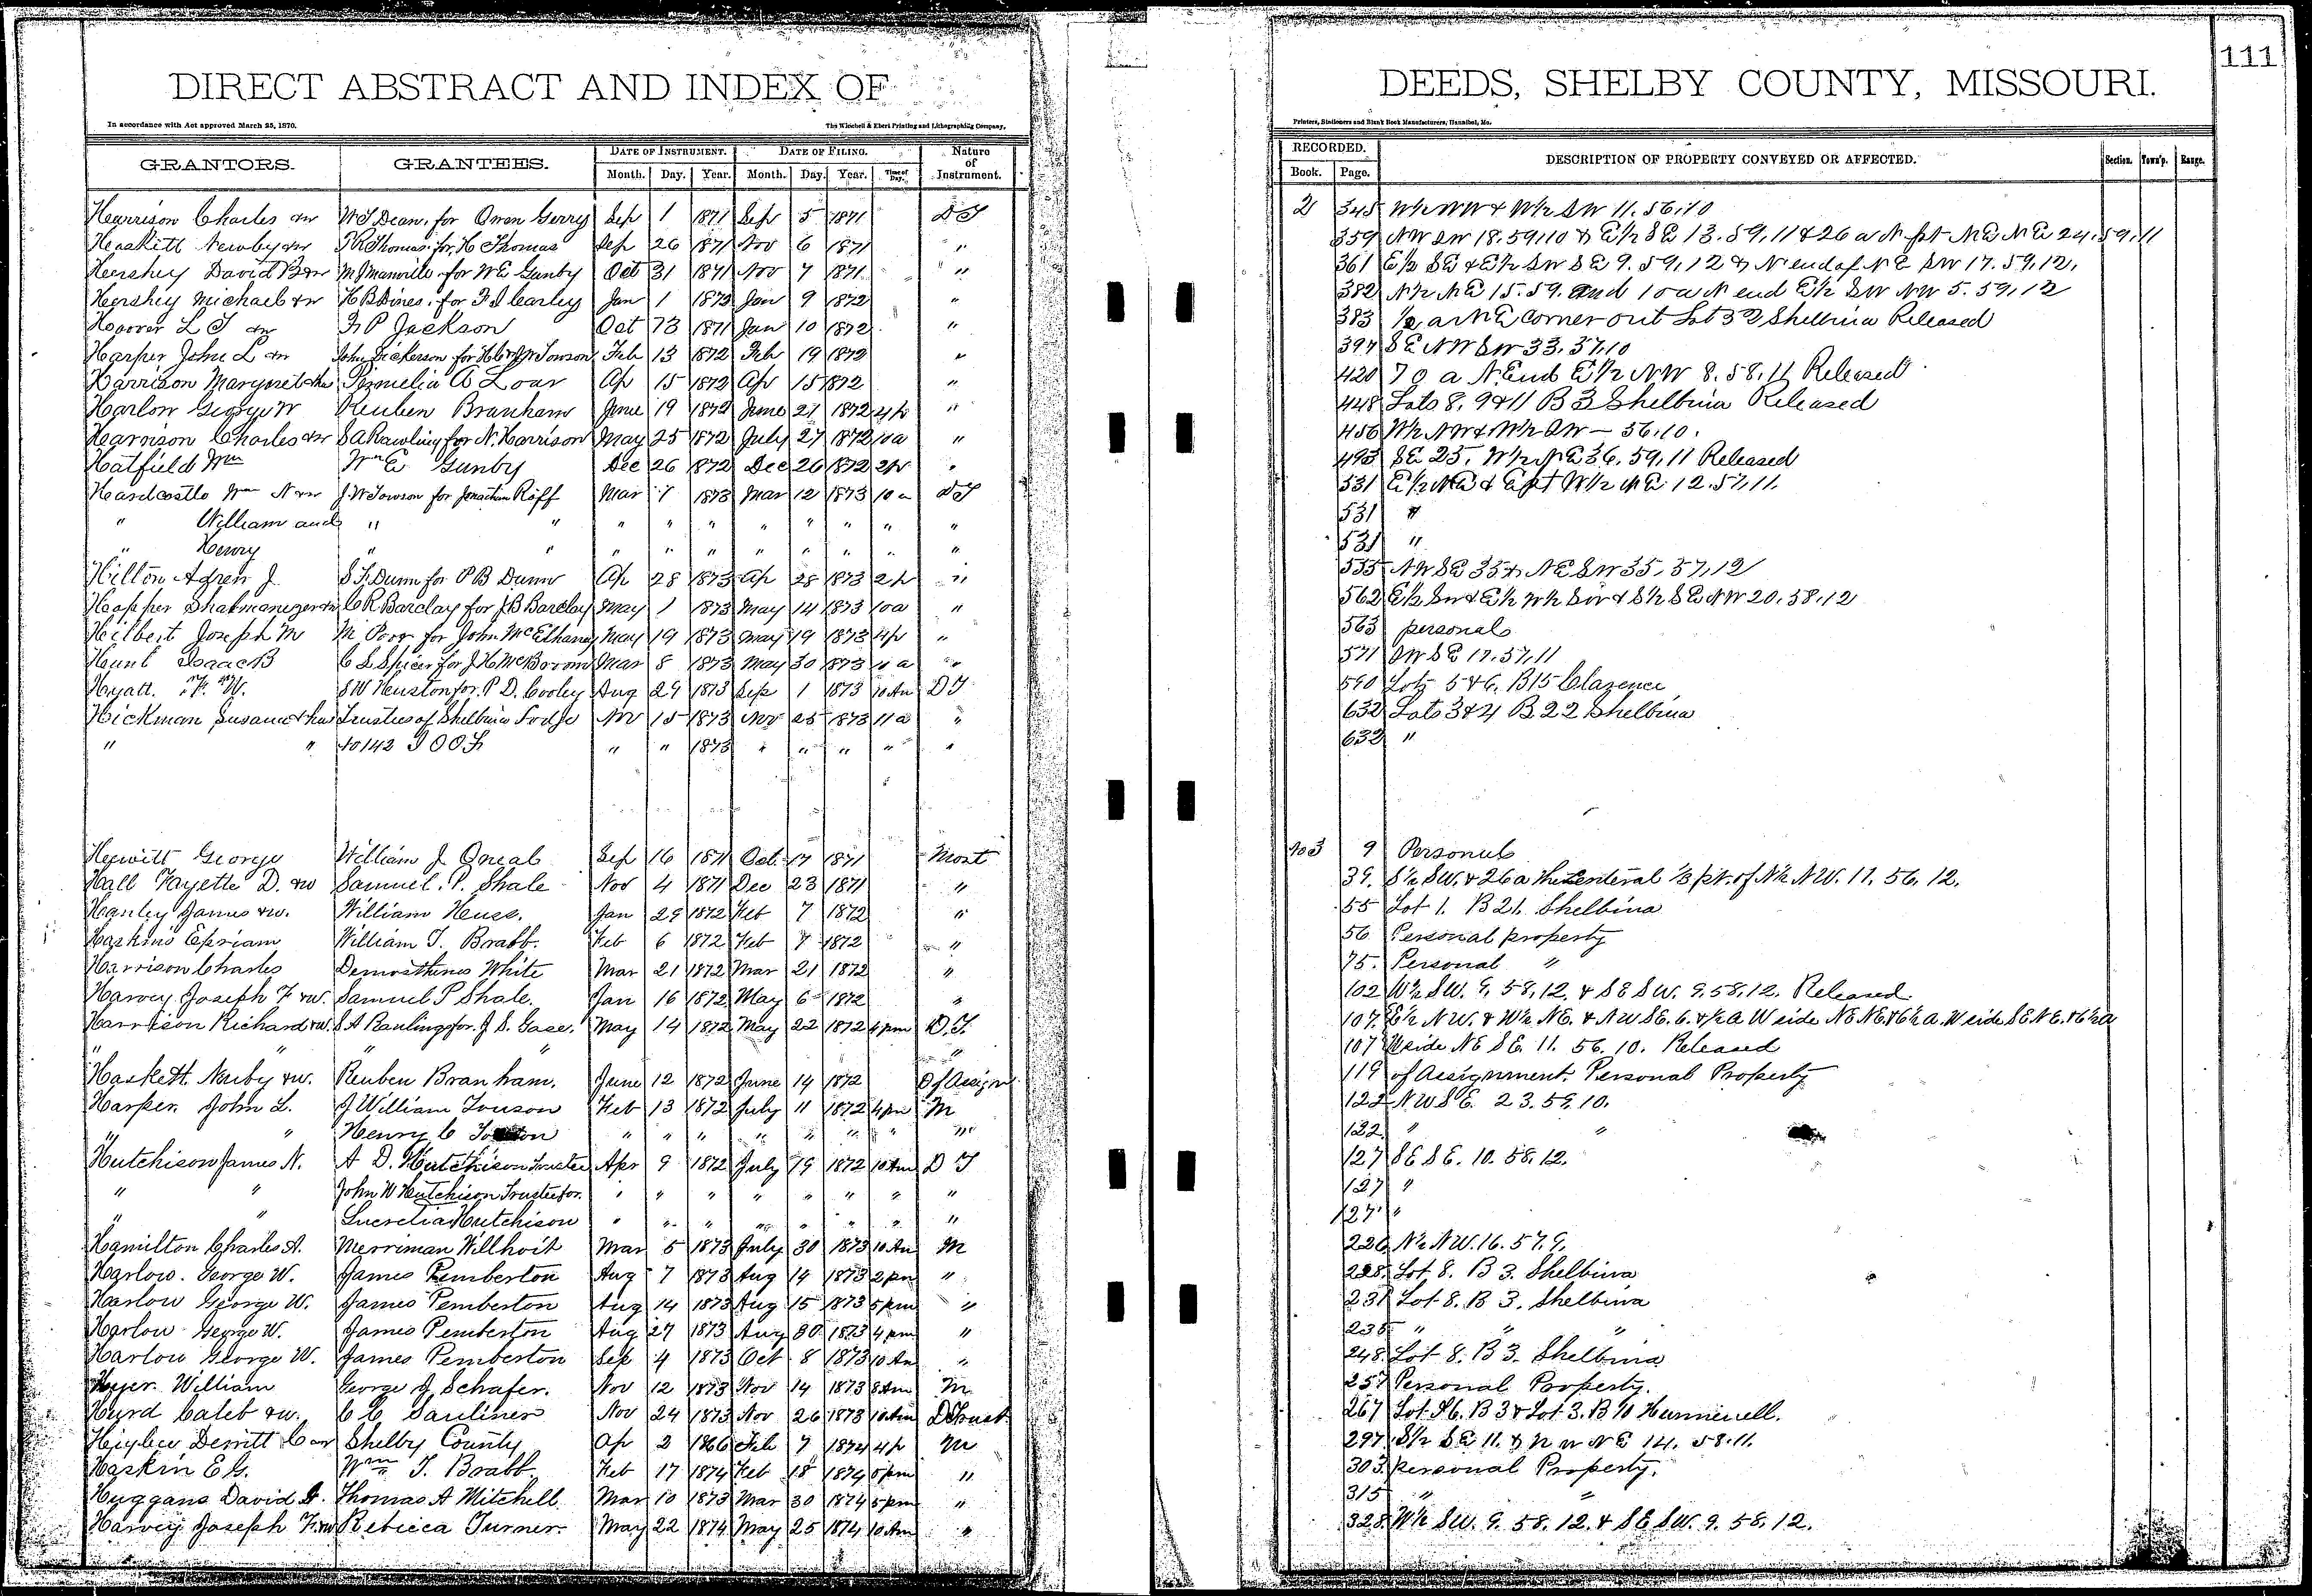 111
DIRECT ABSTRACT AND INDEX OF DEEDS, SHELBY COUNTY, MISSOURI.
In accordance with Act approved March 25, 1870. The Winchell & Ebert Printing and Lithographing Company, Printers, Stationers and Blank Book Manufacturers, Hannibal, Mo.
GRANTORS. GRANTEES. DATE OF INSTRUMENT. DATE OF FILING. Nature of Instrument. RECORDED. DESCRIPTION OF PROPERTY CONVEYED OR AFFECTED. Section. Town'p. Range.
Month. Day. Year. Month. Day. Year. Time of Day. Book. Page.
Harrison Charles &w W T Dean, for Owen Gerry Sep 1 1871 Sep 5 1871 D T 2 345 W½ NW & W½ SW 11. 56. 10
Haskett Newby &w Thomas, for H Thomas Sep 26 1871 Nov 6 1871 " 359 NW SW 18. 59. 10 & E½ SE 13. 59. 11 & 26 a N. pt NE NE 24. 59. 11
Hershey David B &w M J Manville, for W E Gunby Oct 31 1871 Nov 7 1871 " 361 E½ SE & E½ SW SE 9. 59. 12 & N end of NE SW 17. 59. 12.
Hershey Michael &w H B Dines, for Carley Jan 1 1872 Jan 9 1872 " 382 N½ NE 15. 59. and 10 a N end E½ SW NW 5. 59. 12
Hoover L T &w P Jackson Oct 13 1871 Jan 10 1872 " 383 ½ a NE corner out Lot 33 Shelbina Released
Harper John L &w John Dickerson for H C & J W Towson Feb 13 1872 Feb 19 1872 " 394 SE NW SW 33. 57. 10
Harrison Margaret & hus Permelia A Loar Ap 15 1872 Ap 15 1872 " 420 70 a N. End E½ NW 8. 58. 11 Released
Harlow George W Reuben Branham June 19 1872 June 21 1872 4 p " 448 Lots 8, 9 & 11 B 3 Shelbina Released
Harrison Charles &w S A Rawling for N. Harrison May 25 1872 July 27 1872 10 a " 456 W½ NW & W½ SW — 56. 10.
Hatfield Wm Wm E Gunby Dec 26 1872 Dec 26 1872 2 p " 493 SE 25. W½ NE 36. 59. 11 Released
Hardcastle Wm N &w J. W Towson for Jonathan Roff Mar 7 1873 Mar 12 1873 10 a D T 531 E½ NE & E pt W½ NE 12. 57. 11.
" William and " " " " " " " " " " 531 "
" Henry " " " " " " " " " " 531 "
Hilton J S F. Dunn for P B Dunn Ap 28 1873 Ap 28 1873 2 p " 555 NW SE 35 & NE SW 35. 57. 12
Hopper &w C R Barclay for J B Barclay May 1 1873 May 14 1873 10 a " 562 E½ SW & E½ W½ SW & S½ SE NW 20. 58. 12
Hilbert Joseph M M Poor for John McElhaney May 19 1873 May 19 1873 4 p " 563 personal
Hunt Isaac B C L Spicer for J H McBroom Mar 8 1873 May 30 1873 a " 571 SW SE 17. 57. 11
Hyatt. F. W. S W Heuston for. P D. Cooley Aug 29 1873 Sep 1 1873 10 Am D T 590 Lots 5 & 6. B 15 Clarence
Hickman Susan & hus Trustees of Shelbina Lodge Nov 15 1873 Nov 25 1873 11 a " 632 Lots 3 & 4 B 22 Shelbina
" " No 142 I O O F " " 1873 " " " " " 632 "
Hewitt George William J Oneal Sep 16 1871 Oct 17 1871 Mort No 3 9 Personal
Hall Fayette D. &w Samuel. P. Shale Nov 4 1871 Dec 23 1871 " 39. S½ SW. & 26 a the central ⅓ pt. of N½ NW. 11. 56. 12.
Hanley James &w. William Heuss. Jan 29 1872 Feb 7 1872 " 55 Lot 1. B 21. Shelbina
Haskins Epriam William T. Brabb. Feb 6 1872 Feb 7 1872 " 56 Personal property
Harrison Charles Demosthenes White Mar 21 1872 Mar 21 1872 " 75. Personal "
Harvey Joseph F &w. Samuel P Shale. Jan 16 1872 May 6 1872 " 102 W½ SW. 9. 58. 12. & SE SW. 9. 58. 12. Released.
Harrison Richard &w. S A Rawling for. J S. Gase. May 14 1872 May 22 1872 4 pm D. T. 107. E½ NW. & W½ NE. & NW SE. 6. & ½ a W side NE NE. & 6½ a. W side SE NE. & 6½ a
" " " " 107 W side NE SE. 11. 56. 10. Released
Haskett. Nuby &w. Reuben Branham. June 12 1872 June 14 1872 D of Assign 119 of Assignment. Personal Property
Harper. John L. J William Touson Feb 13 1872 July 11 1872 4 pm M 122 NW SE. 23. 59. 10.
" " Henry C " " " " " " " " 122. " "
Hutchison James N. A D. Hutchison Trustee Apr 9 1872 July 19 1872 10 Am D T 127 SE SE. 10. 58. 12.
" " John W Hutchison Trustee for. " " " " " " " " 127 "
" " Lucretia Hutchison " " " " " " " " 127 "
Hamilton Charles A. Merriman Willhoit Mar 5 1873 July 30 1873 10 Am M 226 N½ NW. 16. 57. 9.
Harlow. George W. James Pemberton Aug 7 1873 Aug 14 1873 2 pm " 228. Lot 8. B 3. Shelbina
Harlow George W. James Pemberton Aug 14 1873 Aug 15 1873 5 pm " 231 Lot 8. B 3. Shelbina
Harlow George W. James Pemberton Aug 27 1873 Aug 30 1873 4 pm " 235 " " "
Harlow George W. James Pemberton Sep 4 1873 Oct 8 1873 10 Am " 248. Lot 8. B 3. Shelbina
Hyer. William George J Schafer. Nov 12 1873 Nov 14 1873 8 Am M 257 Personal Property.
Hurd Caleb &w. C C Nov 24 1873 Nov 26 1873 10 Am D Trust 267 Lot 6. B 3 & Lot 3. B 10 Hunnewell.
Higbee Derritt C &w Shelby County Ap 2 1866 Feb 7 1874 4 p M 297. S½ SE 11. & N W NE 14. 58. 11.
Haskin E G. Wm T. Brabb. Feb 17 1874 Feb 18 1874 5 pm " 303. Personal Property.
Huggans David A. Thomas A Mitchell Mar 10 1873 Mar 30 1874 5 pm " 315 " "
Harvey Joseph F. &w Rebecca Turner. May 22 1874 May 25 1874 10 Am " 328. W½ SW. 9. 58. 12. & SE SW. 9. 58. 12.